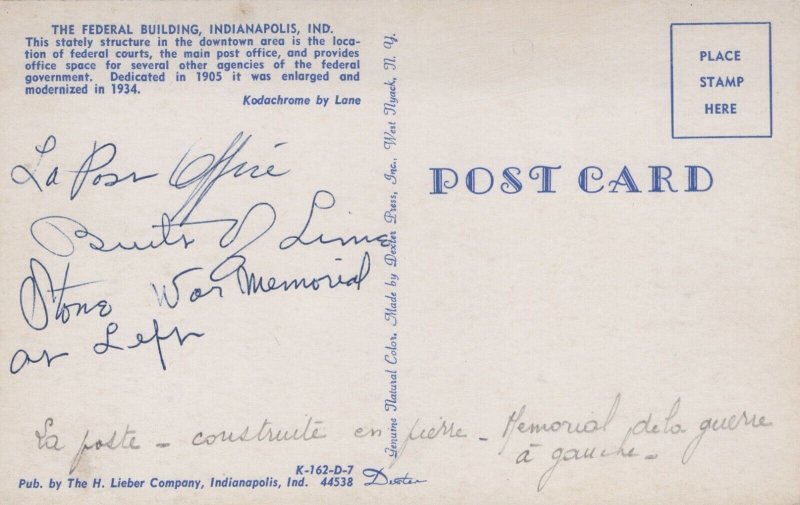 THE FEDERAL BUILDING, INDIANAPOLIS, IND.
This stately structure in the downtown area is the loca-
tion of federal courts, the main post office, and provides
office space for several other agencies of the federal
government. Dedicated in 1905 it was enlarged and
modernized in 1934.
Kodachrome by Lane
La Post Office
Built of Lime
Stone War Memorial
at Left
Genuine Natural Color, Made by Dexter Press, Inc., West Nyack, N. Y.
PLACE
STAMP
HERE
POST CARD
La poste - construite en pierre - Memorial de la guerre
à gauche -
K-162-D-7
Pub. by The H. Lieber Company, Indianapolis, Ind. 44538 Dexter